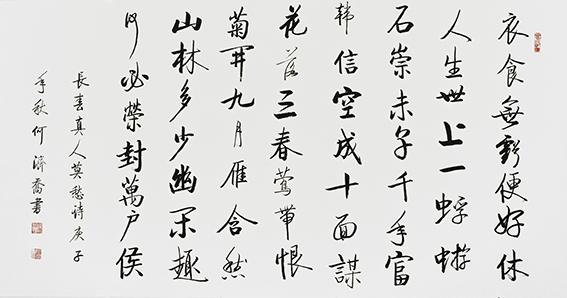 衣食無虧便好休
人生世上一蜉蝣
石崇未享千年富
韓信空成十面謀
花落三春鶯帶恨
菊開九月雁含愁
山林多少幽閑趣
何必榮封萬户侯
長春真人莫愁诗庚子
年秋何濟喬書